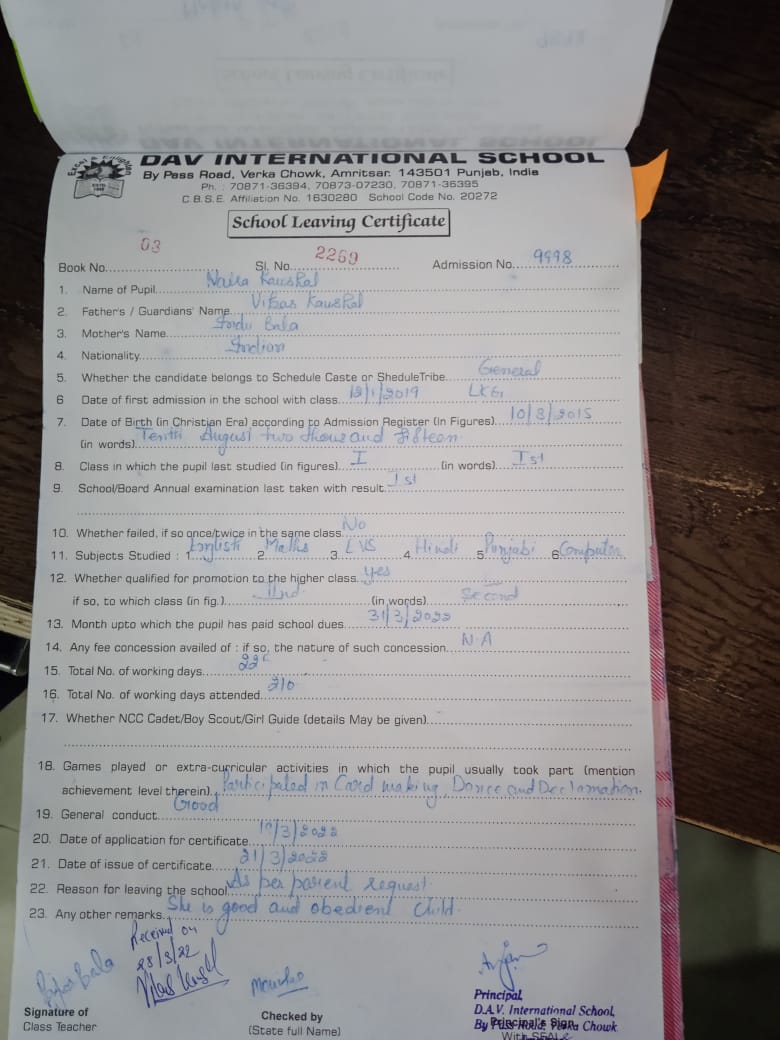 Excel & Enlighten
ESTD.
DAV INTERNATIONAL SCHOOL
By Pass Road, Verka Chowk, Amritsar. 143501 Punjab, India
Ph. : 70871-36394, 70873-07230, 70871-36395
C.B.S.E. Affiliation No. 1630280 School Code No. 20272
School Leaving Certificate
Book No. 03 Sl. No. 2269 Admission No. 9998
1. Name of Pupil Naira Kaushal
2. Father's / Guardians' Name Vikas Kaushal
3. Mother's Name Indu Bala
4. Nationality Indian
5. Whether the candidate belongs to Schedule Caste or SheduleTribe General
6 Date of first admission in the school with class /1/2019 LKG
7. Date of Birth (in Christian Era) according to Admission Register (In Figures) 10/8/2015
(in words) Tenth August two thousand fifteen
8. Class in which the pupil last studied (in figures) I (in words) Ist
9. School/Board Annual examination last taken with result Ist
10. Whether failed, if so once/twice in the same class No
11. Subjects Studied : 1. English 2. Maths 3. EVS 4. Hindi 5. Punjabi 6. Computer
12. Whether qualified for promotion to the higher class yes
if so, to which class (in fig.) IInd (in words) Second
13. Month upto which the pupil has paid school dues 31/3/2022
14. Any fee concession availed of : if so, the nature of such concession N.A
15. Total No. of working days
16. Total No. of working days attended 210
17. Whether NCC Cadet/Boy Scout/Girl Guide (details May be given)
18. Games played or extra-curricular activities in which the pupil usually took part (mention
achievement level therein) Participated in Card making, Dance and Declamation.
19. General conduct Good
20. Date of application for certificate /3/2022
21. Date of issue of certificate 21/3/2022
22. Reason for leaving the school As per parent request
23. Any other remarks She is good and obedient child.
Received on
/3/22
Bala
Signature of
Class Teacher
Checked by
(State full Name)
Principal,
D.A.V. International School,
By Pass Road, Verka Chowk
Principal's Sign.
With SEAL